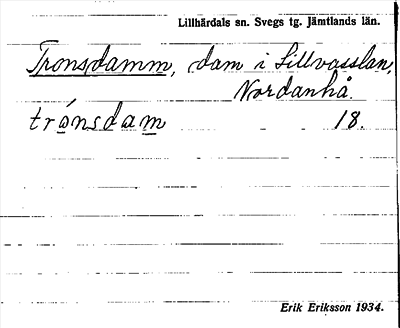 Lillhärdals sn. Svegs tg. Jämtlands län.
Tronsdamm, dam i Lillvasslan,
Nordanhå.
trånsdam 18.
Erik Eriksson 1934.